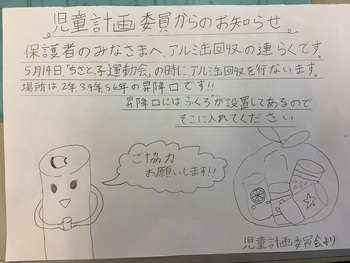 児童計画委員からのお知らせ
保護者のみなさまへ、アルミ缶回収の連らくです。
5月14日、「ちさとっ子運動会」の時にアルミ缶回収を行ないます。
場所は、2年、3.4年、5.6年の昇降口です!!
昇降口にはふくろが設置してあるので
そこに入れてください
ご協力
お願いします!!
児童計画委員会より